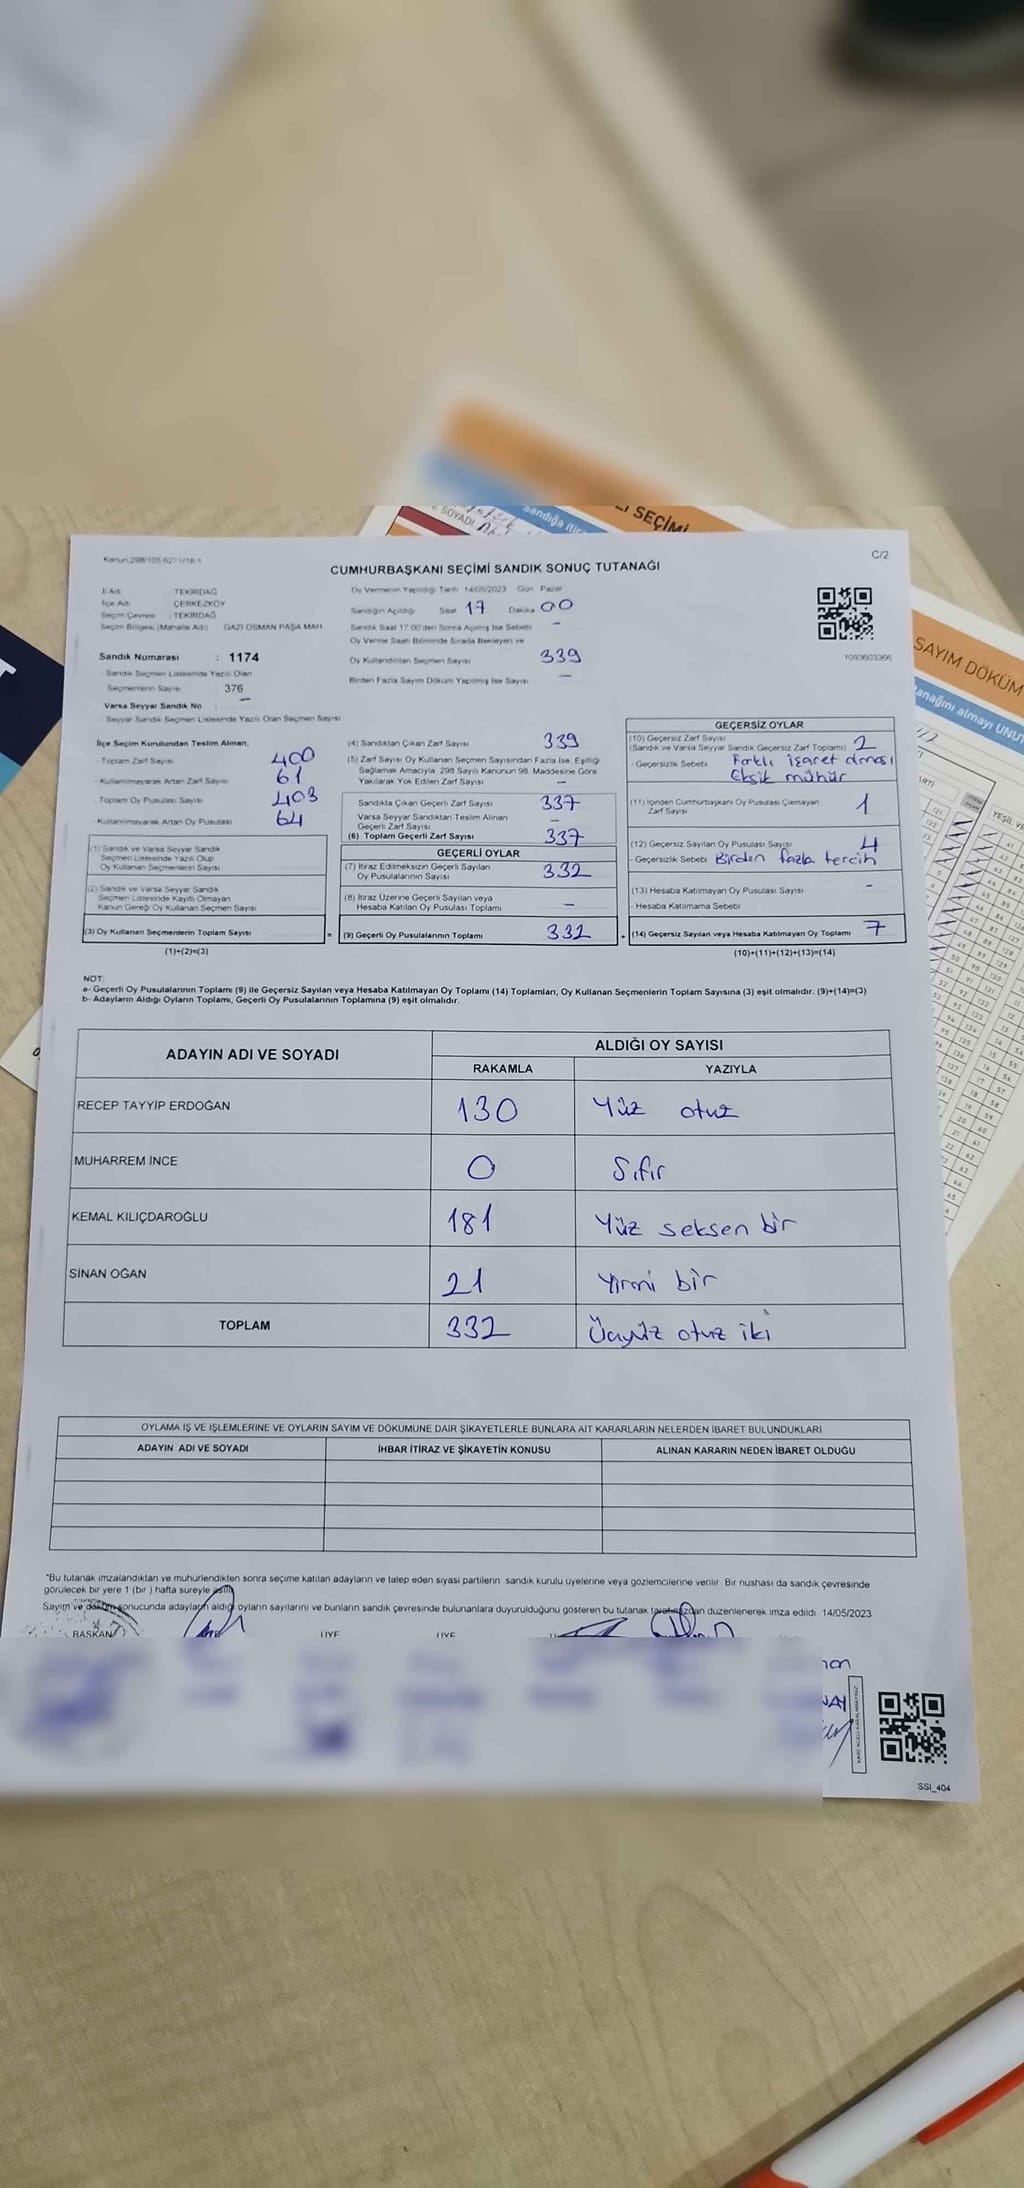 E SOYADI
Sandığa itir
Lİ SEÇİMİ
SAYIM DÖKÜM
anağını almayı UNUT
Kanun:298/105.6271/18-1
C/2
CUMHURBAŞKANI SEÇİMİ SANDIK SONUÇ TUTANAĞI
İl Adı : TEKİRDAĞ
İlçe Adı : ÇERKEZKÖY
Seçim Çevresi : TEKİRDAĞ
Seçim Bölgesi (Mahalle Adı) : GAZİ OSMAN PAŞA MAH
Sandık Numarası : 1174
- Sandık Seçmen Listesinde Yazılı Olan
Seçmenlerin Sayısı : 376
Varsa Seyyar Sandık No : -
- Seyyar Sandık Seçmen Listesinde Yazılı Olan Seçmen Sayısı
Oy Vermenin Yapıldığı Tarih 14/05/2023 Gün Pazar
Sandığın Açıldığı Saat 17 Dakika 00
Sandık Saat 17.00'den Sonra Açılmış İse Sebebi -
Oy Verme Saati Bitiminde Sırada Bekleyen ve
Oy Kullandırılan Seçmen Sayısı 339
Birden Fazla Sayım Döküm Yapılmış İse Sayısı -
1093603366
İlçe Seçim Kurulundan Teslim Alınan;
- Toplam Zarf Sayısı 400
- Kullanılmayarak Artan Zarf Sayısı 61
- Toplam Oy Pusulası Sayısı 403
- Kullanılmayarak Artan Oy Pusulası 64
(1) Sandık ve Varsa Seyyar Sandık
Seçmen Listesinde Yazılı Olup
Oy Kullanan Seçmenlerin Sayısı
(2) Sandık ve Varsa Seyyar Sandık
Seçmen Listesinde Kayıtlı Olmayan
Kanun Gereği Oy Kullanan Seçmen Sayısı
(3) Oy Kullanan Seçmenlerin Toplam Sayısı
(1)+(2)=(3)
(4) Sandıktan Çıkan Zarf Sayısı 339
(5) Zarf Sayısı Oy Kullanan Seçmen Sayısından Fazla İse, Eşitliği
Sağlamak Amacıyla, 298 Sayılı Kanunun 98. Maddesine Göre
Yakılarak Yok Edilen Zarf Sayısı -
Sandıkta Çıkan Geçerli Zarf Sayısı 337
Varsa Seyyar Sandıktan Teslim Alınan
Geçerli Zarf Sayısı -
(6) Toplam Geçerli Zarf Sayısı 337
GEÇERLİ OYLAR
(7) İtiraz Edilmeksizin Geçerli Sayılan
Oy Pusulalarının Sayısı 332
(8) İtiraz Üzerine Geçerli Sayılan veya
Hesaba Katılan Oy Pusulası Toplamı -
= (9) Geçerli Oy Pusulalarının Toplamı 332
GEÇERSİZ OYLAR
(10) Geçersiz Zarf Sayısı
(Sandık ve Varsa Seyyar Sandık Geçersiz Zarf Toplamı) 2
- Geçersizlik Sebebi Farklı işaret olması
Eksik mühür
(11) İçinden Cumhurbaşkanı Oy Pusulası Çıkmayan
Zarf Sayısı 1
(12) Geçersiz Sayılan Oy Pusulası Sayısı 4
- Geçersizlik Sebebi Birden fazla tercih
(13) Hesaba Katılmayan Oy Pusulası Sayısı -
- Hesaba Katılmama Sebebi
+ (14) Geçersiz Sayılan veya Hesaba Katılmayan Oy Toplamı 7
(10)+(11)+(12)+(13)=(14)
NOT:
a- Geçerli Oy Pusulalarının Toplamı (9) ile Geçersiz Sayılan veya Hesaba Katılmayan Oy Toplamı (14) Toplamları, Oy Kullanan Seçmenlerin Toplam Sayısına (3) eşit olmalıdır. (9)+(14)=(3)
b- Adayların Aldığı Oyların Toplamı, Geçerli Oy Pusulalarının Toplamına (9) eşit olmalıdır.
ADAYIN ADI VE SOYADI
ALDIĞI OY SAYISI
RAKAMLA YAZIYLA
RECEP TAYYİP ERDOĞAN 130 Yüz otuz
MUHARREM İNCE 0 Sıfır
KEMAL KILIÇDAROĞLU 181 Yüz seksen bir
SİNAN OĞAN 21 Yirmi bir
TOPLAM 332 Üçyüz otuz iki
OYLAMA İŞ VE İŞLEMLERİNE VE OYLARIN SAYIM VE DÖKÜMÜNE DAİR ŞİKAYETLERLE BUNLARA AİT KARARLARIN NELERDEN İBARET BULUNDUKLARI
ADAYIN ADI VE SOYADI İHBAR İTİRAZ VE ŞİKAYETİN KONUSU ALINAN KARARIN NEDEN İBARET OLDUĞU
"Bu tutanak imzalandıktan ve mühürlendikten sonra seçime katılan adayların ve talep eden siyasi partilerin sandık kurulu üyelerine veya gözlemcilerine verilir. Bir nüshası da sandık çevresinde
görülecek bir yere 1 (bir ) hafta süreyle asılır.
Sayım ve döküm sonucunda adayların aldığı oyların sayılarını ve bunların sandık çevresinde bulunanlara duyurulduğunu gösteren bu tutanak tarafımızdan düzenlenerek imza edildi. 14/05/2023
BAŞKAN ÜYE ÜYE
SSI_404